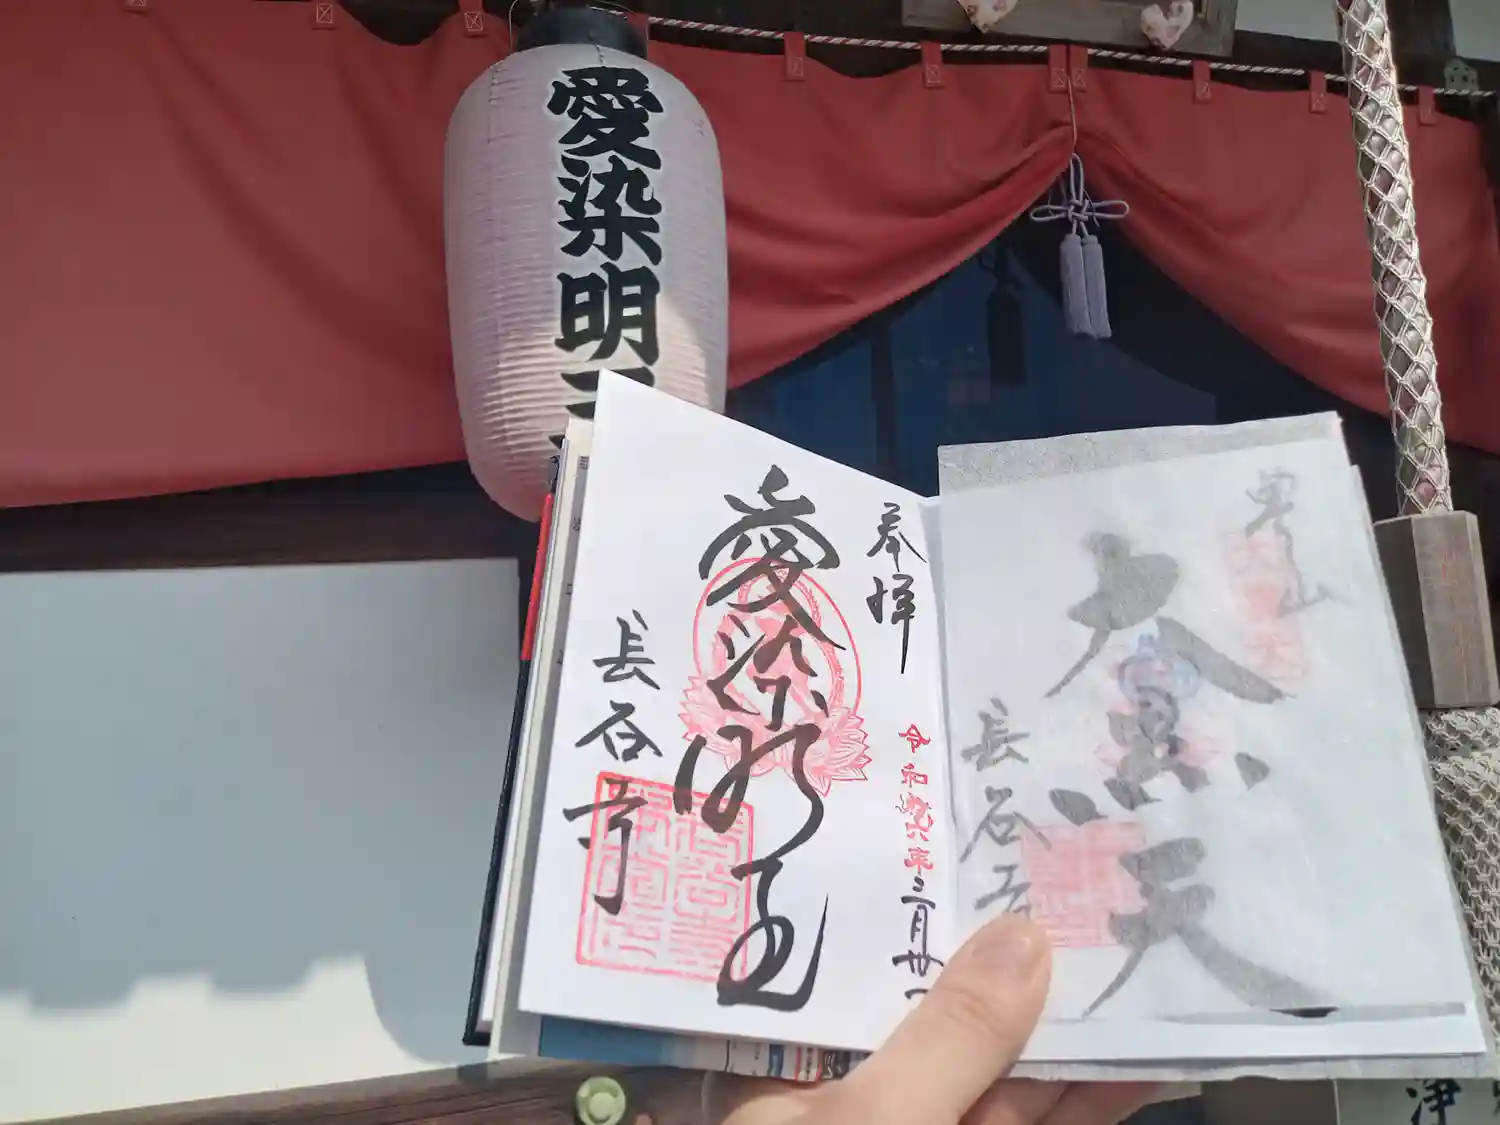 愛染明王
奉拝
愛染明王
長谷寺
令和六年三月廿一
豊山
大黒天
長谷寺
浄